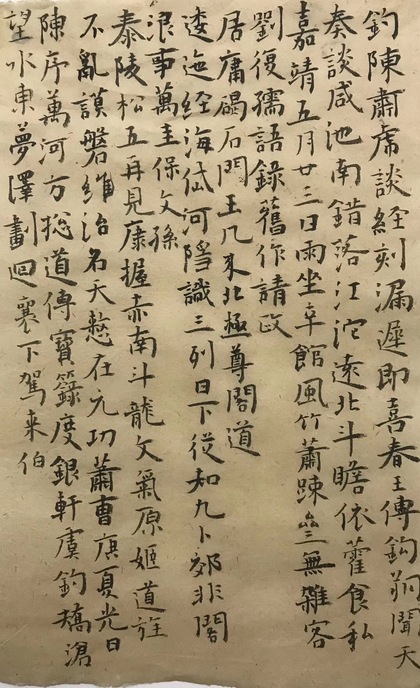 鈎陳肅席談経刻漏遲即喜春王傳鈎前聞天
奏談咸池南錯落江沱遠北斗瞻依藿食私
嘉靖五月廿三日雨坐辛館風竹蕭踈㠭無雜客
劉復孺語錄舊作請政
居庸碣石門王几來北極尊閣道
逶迤経海岱河隂識三列日下従知九卜郊非閣
浪事萬圭保文孫
泰陵松五再見康握赤南斗龍文氣原姬道旌
不亂謨磐維治名天憗在元功蕭曹庹夏光日
陳序萬河方捴道傳寳籙度銀軒虞鈞矯滄
望水東夢澤劃迴襄下駕来伯